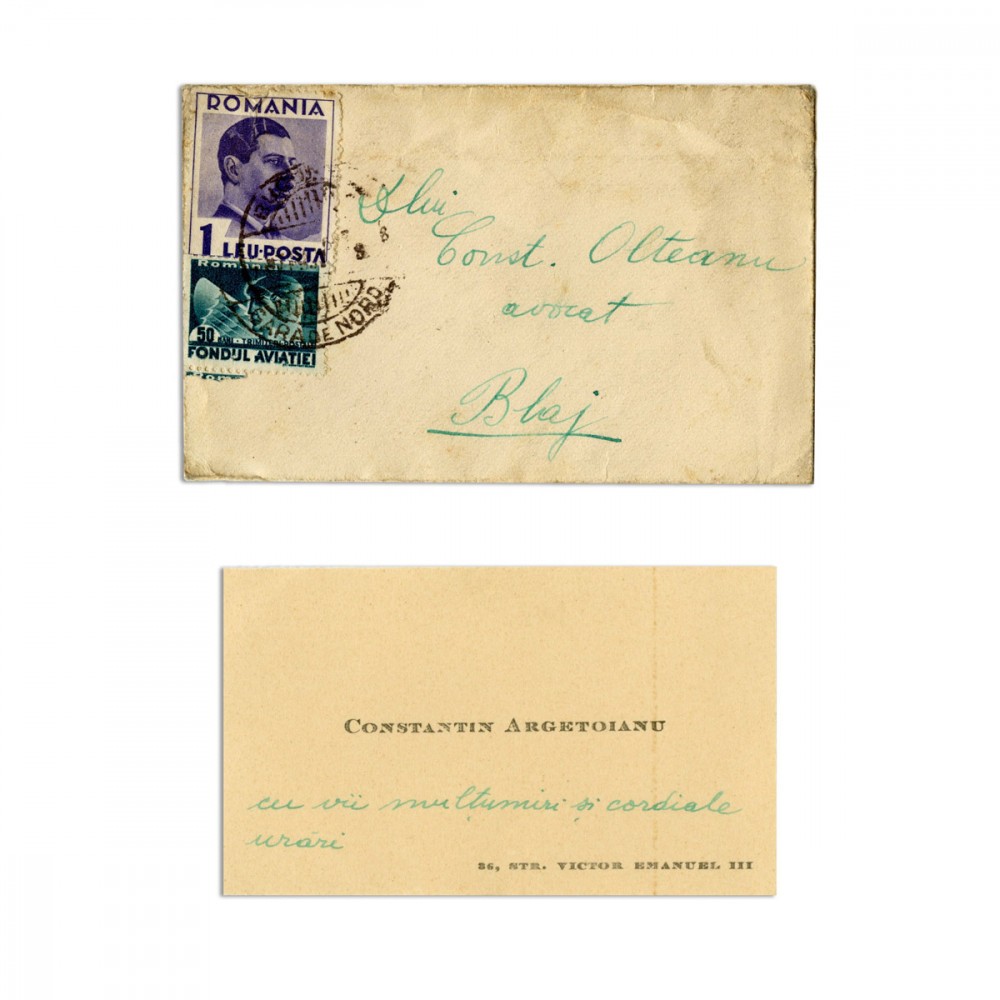 ROMANIA
1 LEU·POSTA
Romania
50 BANI - TRIMITERI POSTALE
FONDUL AVIAȚIEI
GARA DE NORD
Dlui
Const. Olteanu
avocat
Blaj
CONSTANTIN ARGETOIANU
cu vii mulțumiri și cordiale
urări
36, STR. VICTOR EMANUEL III